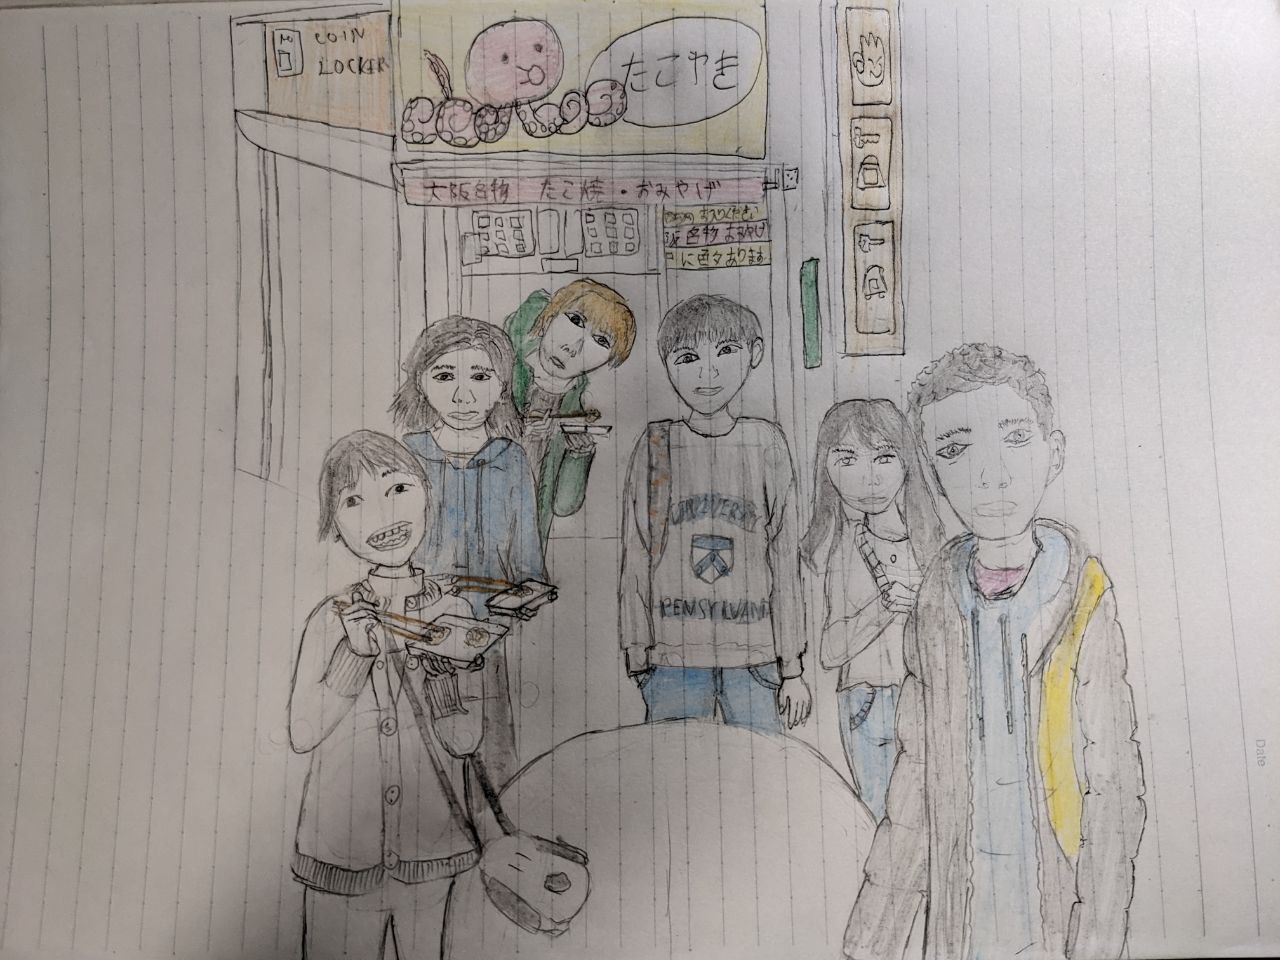 COIN
LOCKER
たこやき
大阪名物 たこ焼・おみやげ
お入りください
名物 おみやげ
に色々あります
UNIVERSITY
PENSYLVANI
Date